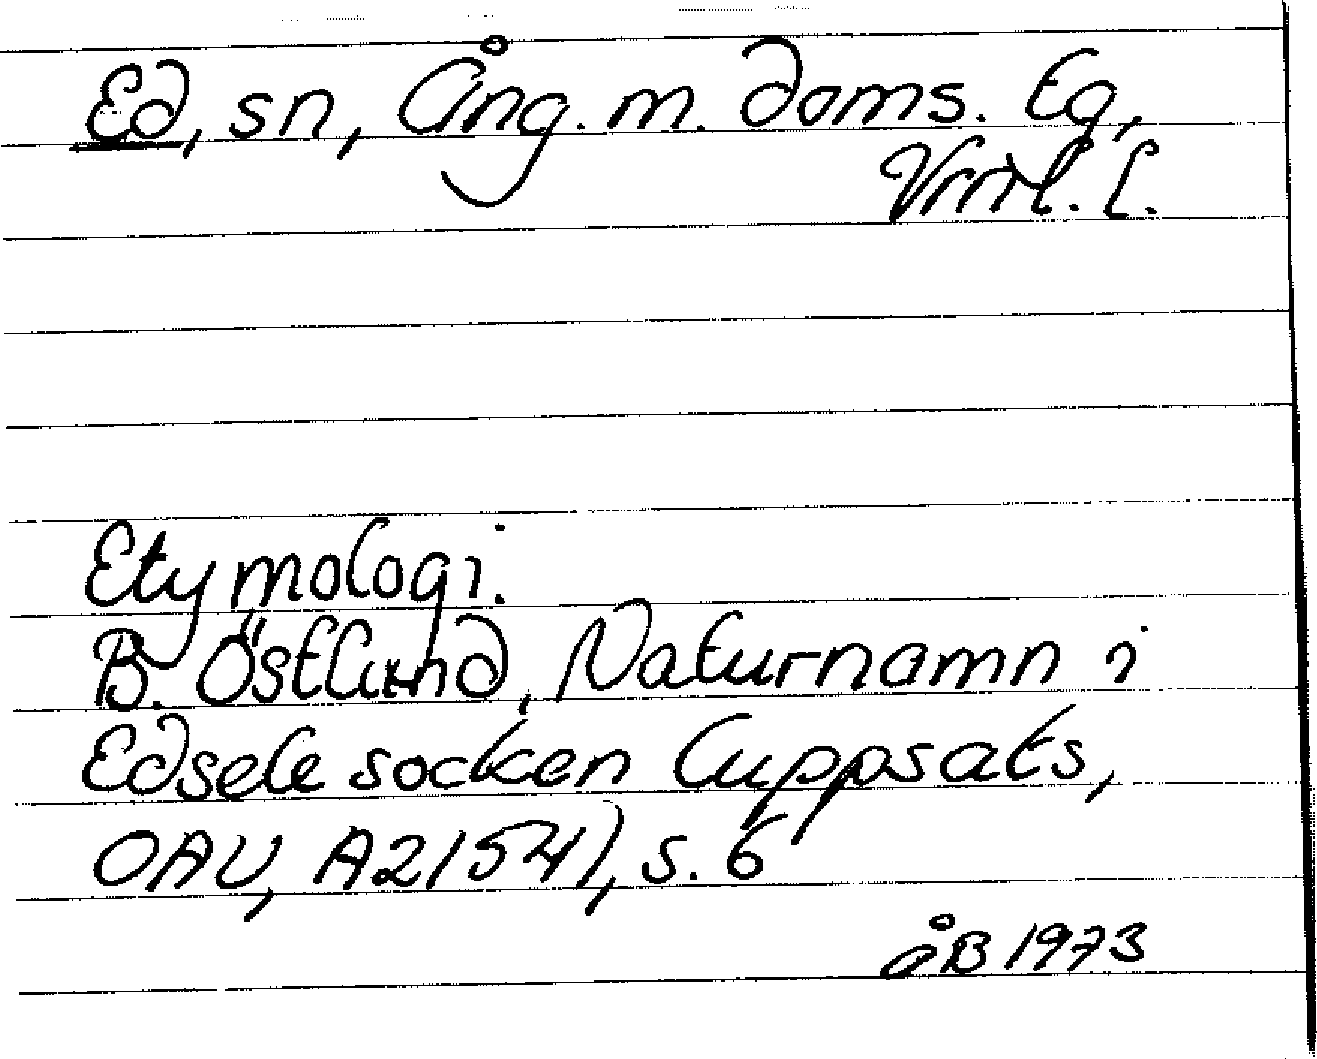 Ed, sn, Ång. m. doms. tg,
Vnrl. l.
Etymologi.
B. Östlund, Naturnamn i
Edsele socken (uppsats,
OAU, A2154), s. 6
ÅB 1973